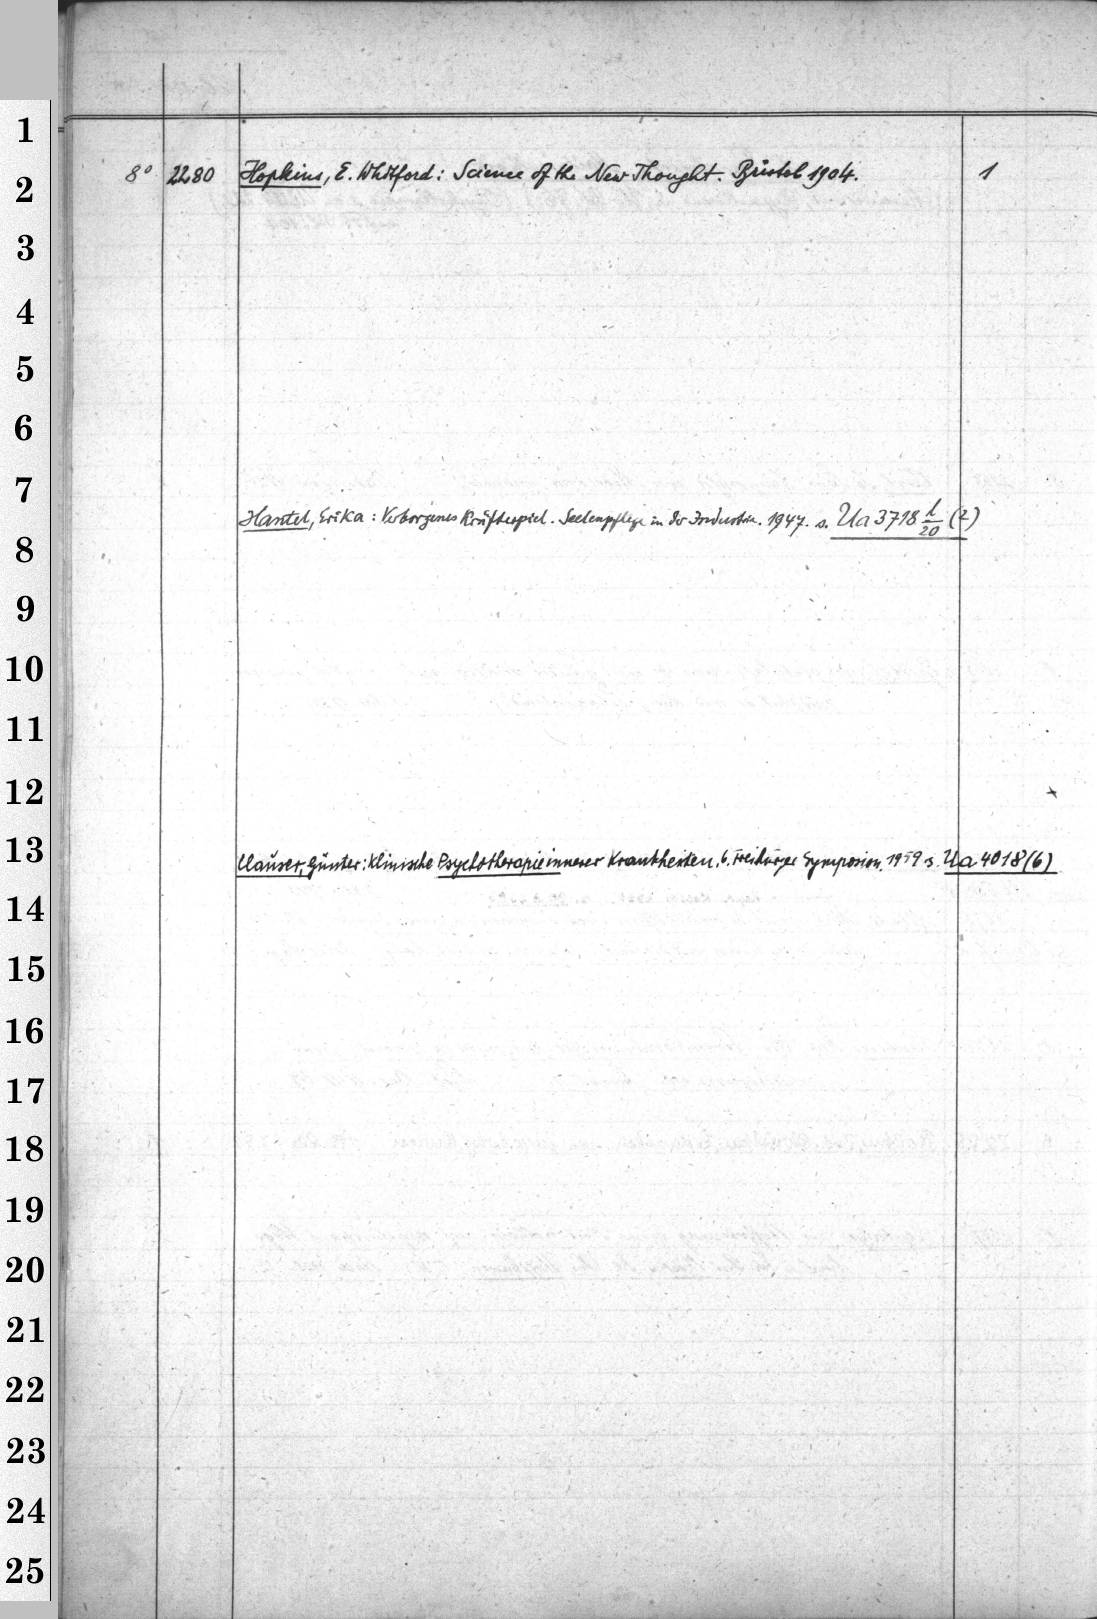 1
8° 2280 Hopkins, E. Whitford: Science of the New Thought. Bristol 1904. 1
2
3
4
5
6
7
Hantel, Erika: Verborgenes Kräftespiel. Seelenpflege in der Industrie. 1947. s. Ua 3718 l/20 (2)
8
9
10
11
12
13
Clauser, Günter: Klinische Psychotherapie innerer Krankheiten. 6. Freiburger Symposion. 1959 s. Ua 4018 (6)
14
15
16
17
18
19
20
21
22
23
24
25